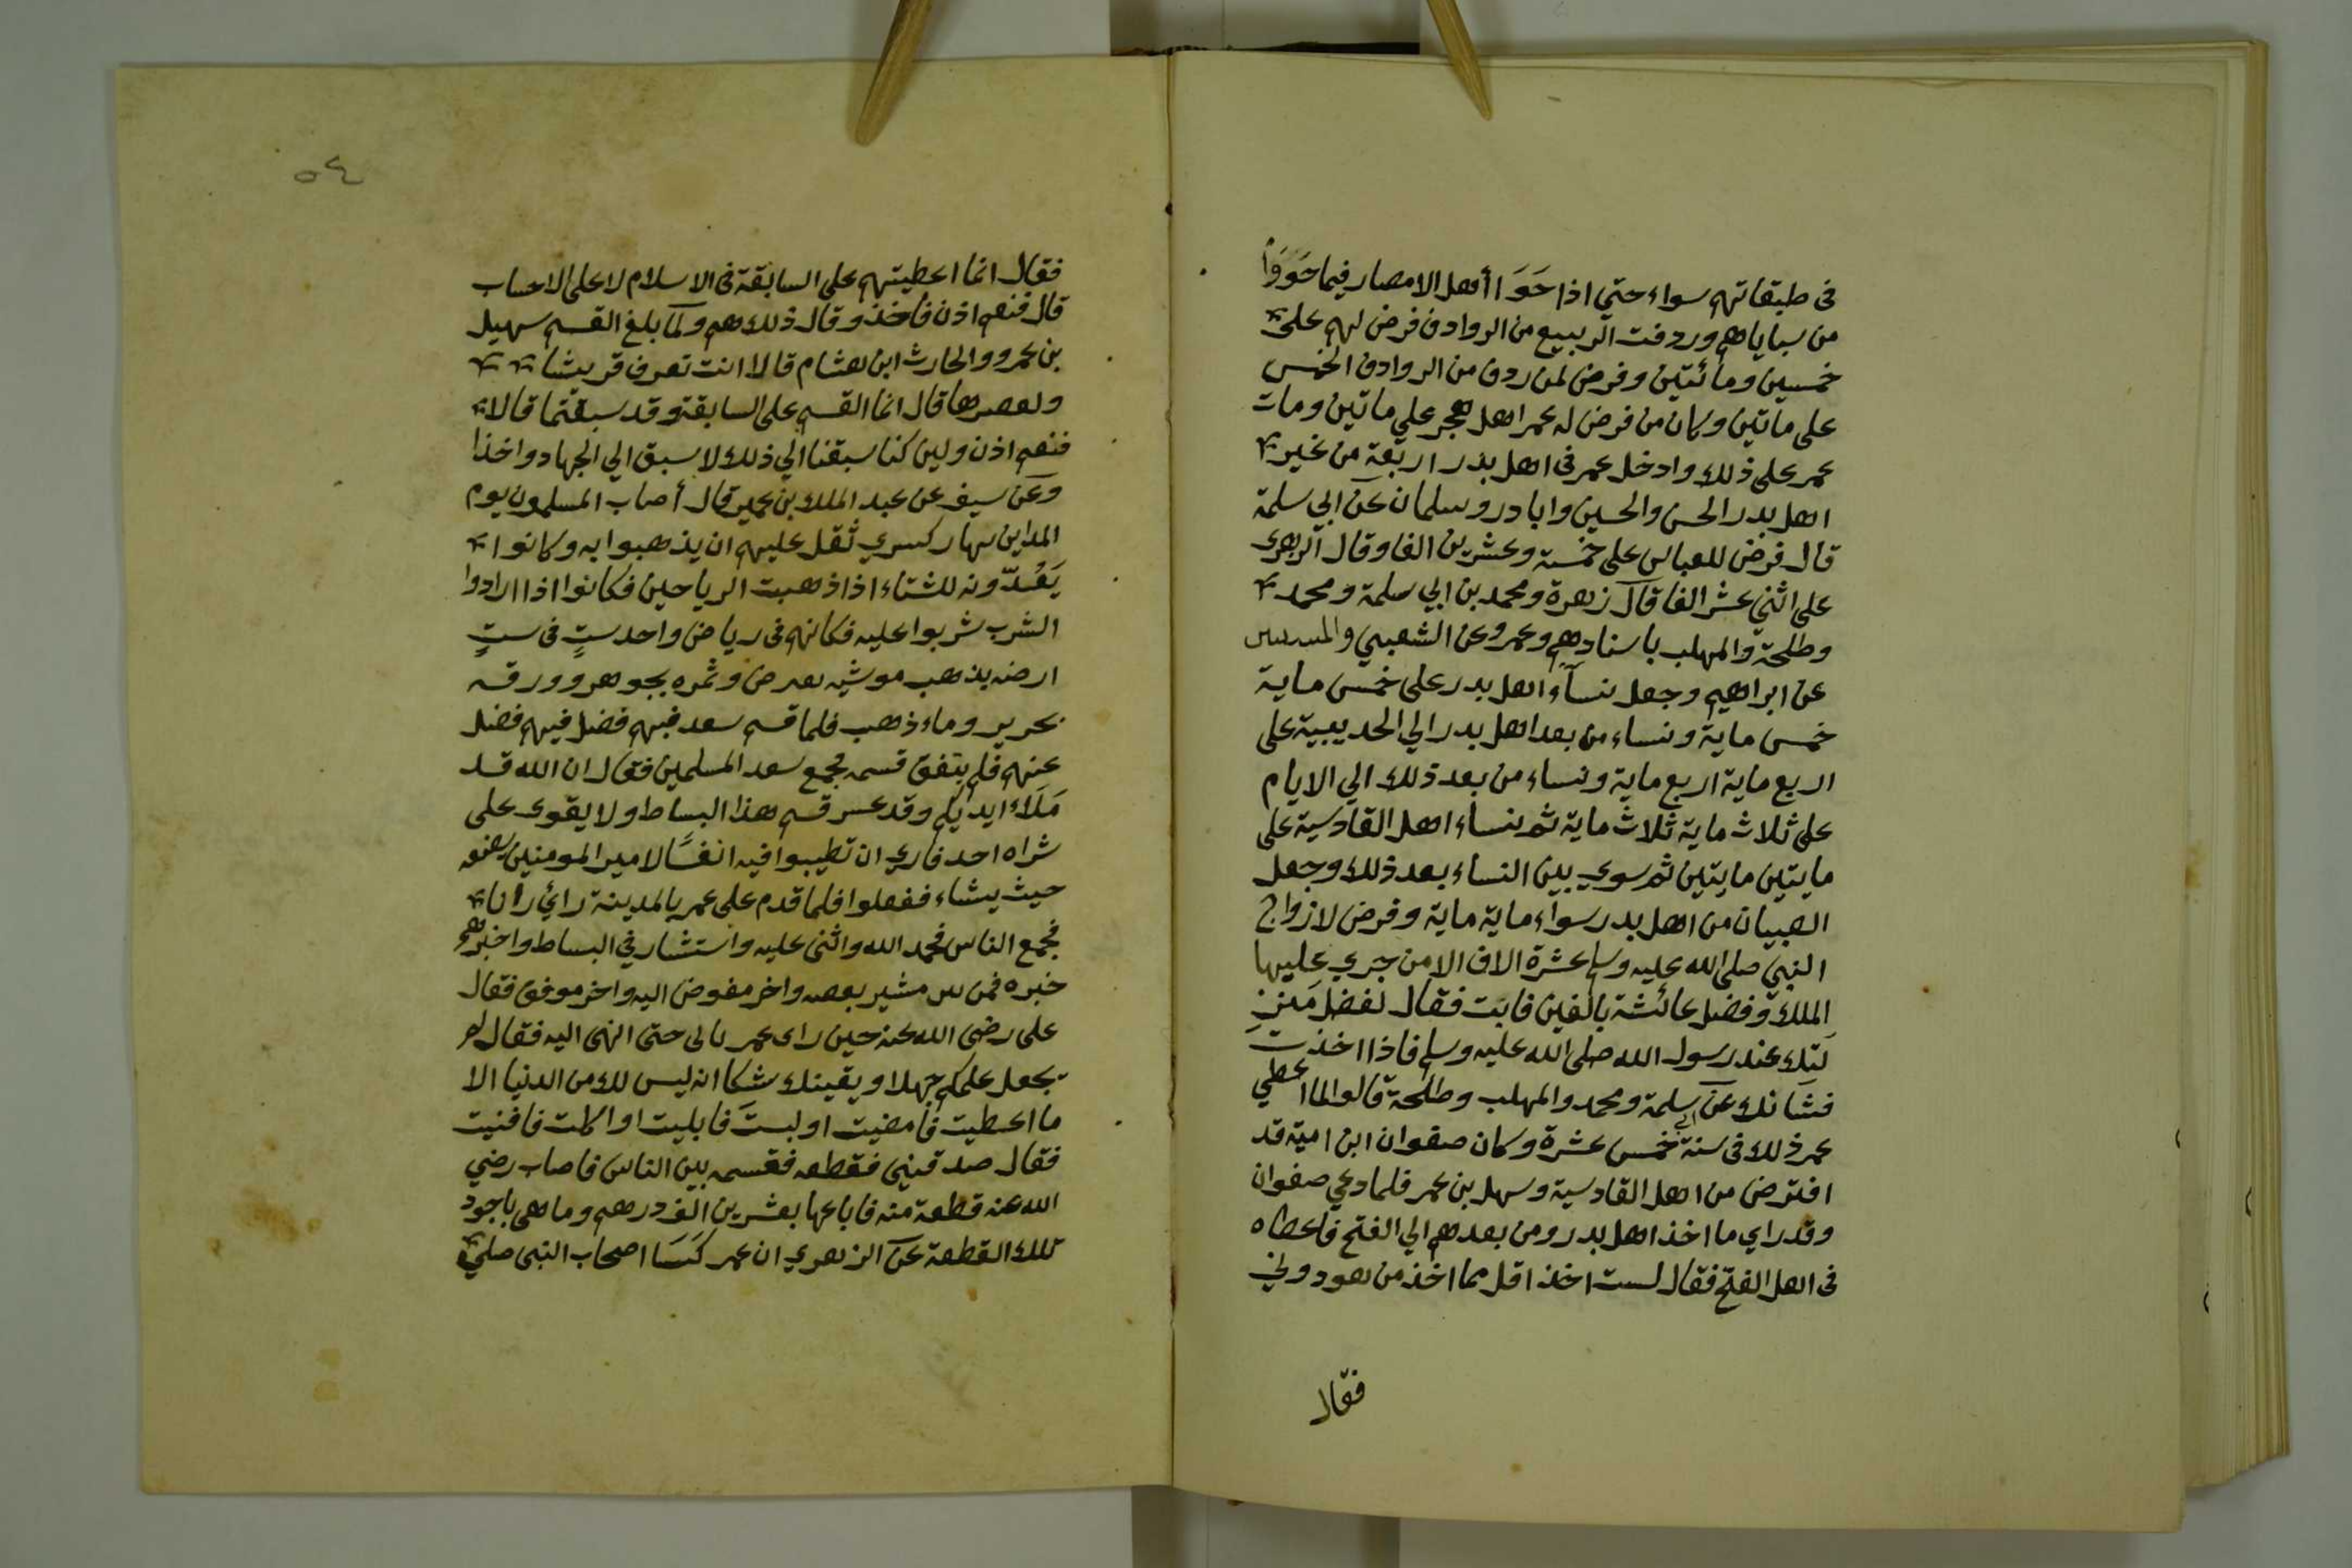 فى طبقاتهم سواء حتي اذا حَوَ ا أهل الامصار فيما حَوَوَا
من سباياهم وردفت الربيع من الروادف فرض لهم على
خمسين ومائتين وفرض لمن ردف من الروادف الخمس
على ماتين وكان من فرض له عمر اهل هجر علي ماتين ومات
عمر على ذلك وادخل عمر فى اهل بدر اربعة من غير
اهل بدر الحسن والحسين وابا در وسلمان عن ابي سلمة
قال فرض للعباس على خمسة وعشرين الفا وقال الزهرى
على اثني عشر الفا قال زهرة ومحمد بن ابي سلمة ومحمد
وطلحة والمهلب باسنادهم وعمر وعن الشعبي
عن ابراهيم وجعل نسآء اهل بدر على خمس ماية
خمس ماية ونساء من بعد اهل بدر الي الحديبية على
اربع ماية اربع ماية ونساء من بعد ذلك الي الايام
على ثلاث ماية ثلاث ماية ثم نساء اهل القادسية على
مايتين مايتين ثم سوي بين النساء بعد ذلك وجعل
الصبيان من اهل بدر سواء ماية ماية وفرض لازواج
النبي صلى الله عليه وسلم عشرة الاف الا من جري عليها
الملك وفضل عائشة بالفين فابت فقال لفضل منز
لتك عند رسول الله صلى الله عليه وسلم فاذا اخذت
فشانك عن ابي سلمة ومحمد والمهلب وطلحة قالوا لما اعطي
عمر ذلك فى سنة خمس عشرة وكان صفوان ابن امية قد
افترض من اهل القادسية وسهل بن عمر فلما دعي صفوان
وقد راي ما اخذ اهل بدر ومن بعدهم الي الفتح فاعطاه
فى اهل الفتح فقال لست اخذ اقل مما اخذ من هو دوني
فقال
٥٤
فقال انما اعطيتهم على السابقة فى الاسلام لا على الاحساب
قال فنعم اذن فاخذ وقال ذلك هم ولما بلغ القسم سهيل
بن عمرو والحارث ابن هشام قالا انت تعرف قريشا
ولعصرها قال انما القسم على السابقة وقد سبقتما قالا
فنعم اذن ولين كنا سبقنا الي ذلك لا سبق الي الجهاد واخذا
وعن سيف عن عبد الملك بن عمير قال أصاب المسلمون يوم
المداين بهار كسري ثقل عليهم ان يذهبوا به وكانوا
يَعُدّونه للشتاء اذا ذهبت الرياحين فكانوا اذا ارادوا
الشرب شربوا عليه فكانهم فى رياض واحد ستٍ فى ستٍ
ارضه بذهب موشيه بعرض وثمره بجوهر وورقه
بحرير وماء ذهب فلما قسم سعد فيهم فضل فيهم فضل
عنهم فلم يتفق قسمه فجمع سعد المسلمين فقال ان الله قد
مَلَاءَ ايديكم وقد عسر قسم هذا البساط ولا يقوى على
شراه احد فاري ان تطيبوا فيه انفسًا لامير المومنين يضعه
حيث يشاء ففعلوا فلما قدم على عمر بالمدينة رائ رايا
فجمع الناس فحمد الله واثنى عليه واستشار في البساط واخبرهم
خبره فمن بين مشير بعصه واخر مفوض اليه واخر موفق فقال
على رضى الله عنه حين راى عمر يابى حتى انهى اليه فقال لم
يجعل علمكم جهلا ويقينك شكا انه ليس لك من الدنيا الا
ما اعطيت فامضيت او لبستَ فابليت او اكلت فافنيت
فقال صدقينى فقطعه فقسمه بين الناس فاصاب رضي
الله عنه قطعة منه فاباعها بعشرين الف درهم وما هى باجود
تلك القطعة عن الزهري ان عمر كَسَا اصحاب النبى صلي